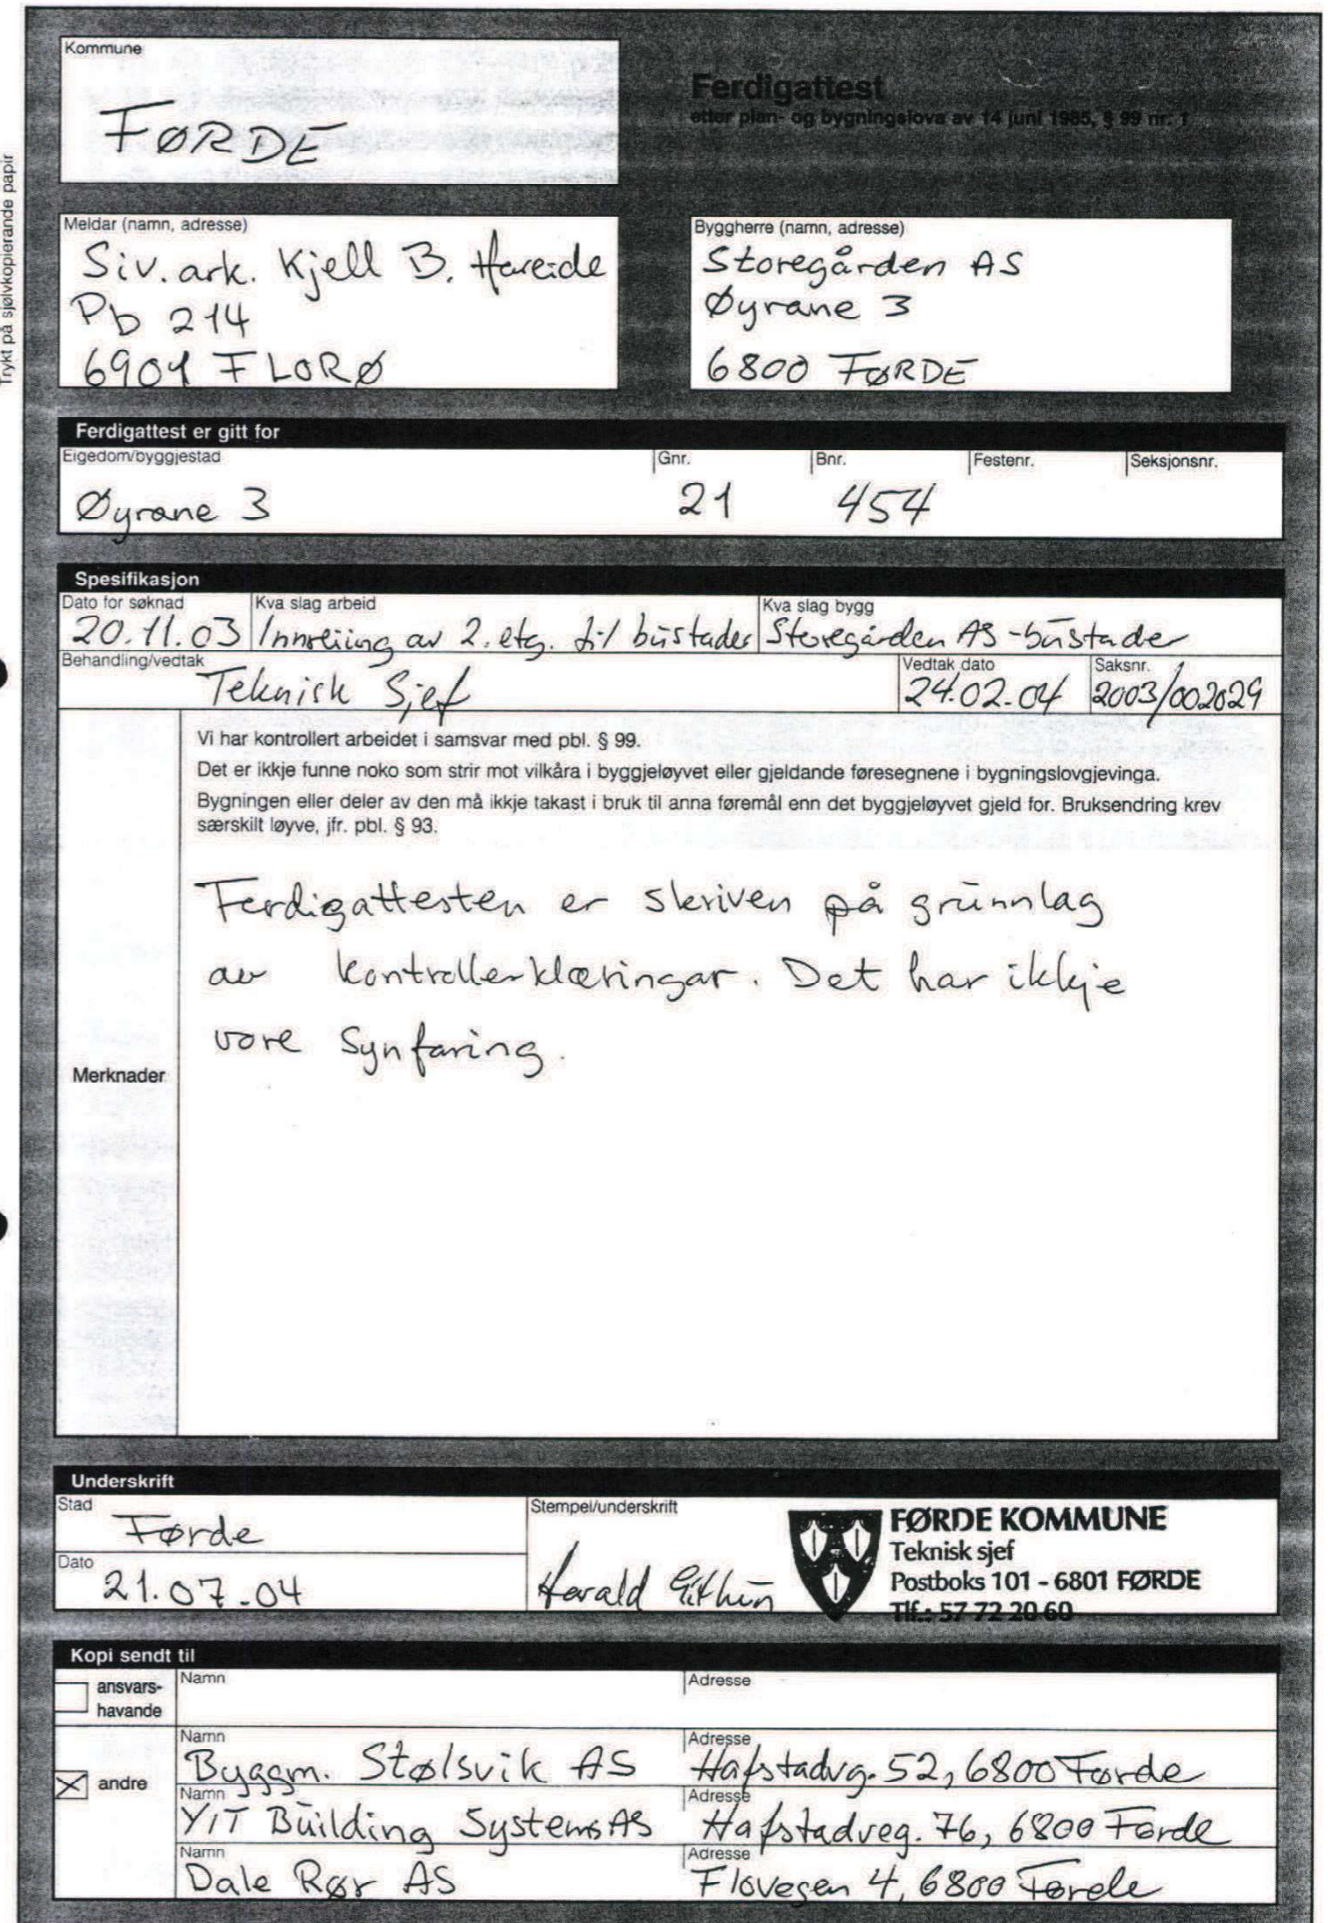 Trykt på sjølvkopierande papir
Kommune
FØRDE
Ferdigattest
etter plan- og bygningslova av 14 juni 1985, § 99 nr. 1
Meldar (namn, adresse)
Siv. ark. Kjell B. Hareide
Pb 214
6901 FLORØ
Byggherre (namn, adresse)
Storegården AS
Øyrane 3
6800 FØRDE
Ferdigattest er gitt for
Eigedom/byggjestad Gnr. Bnr. Festenr. Seksjonsnr.
Øyrane 3 21 454
Spesifikasjon
Dato for søknad Kva slag arbeid Kva slag bygg
20.11.03 Innreiing av 2. etg. til bustader Storegården AS - bustader
Behandling/vedtak Vedtak dato Saksnr.
Teknisk Sjef 24.02.04 2003/002029
Vi har kontrollert arbeidet i samsvar med pbl. § 99.
Det er ikkje funne noko som strir mot vilkåra i byggjeløyvet eller gjeldande føresegnene i bygningslovgjevinga.
Bygningen eller deler av den må ikkje takast i bruk til anna føremål enn det byggjeløyvet gjeld for. Bruksendring krev
særskilt løyve, jfr. pbl. § 93.
Ferdigattesten er skriven på grunnlag
av kontrollerklæringar. Det har ikkje
vore synfaring.
Merknader
Underskrift
Stad
Førde
Dato
21.07.04
Stempel/underskrift
Harald
FØRDE KOMMUNE
Teknisk sjef
Postboks 101 - 6801 FØRDE
Tlf.: 57 72 20 60
Kopi sendt til
ansvars-
havande
Namn Adresse
andre
Namn Adresse
Byggm. Stølsvik AS Hafstadvg. 52, 6800 Førde
Namn Adresse
YIT Building Systems AS Hafstadveg. 76, 6800 Førde
Namn Adresse
Dale Rør AS Flovegen 4, 6800 Førde